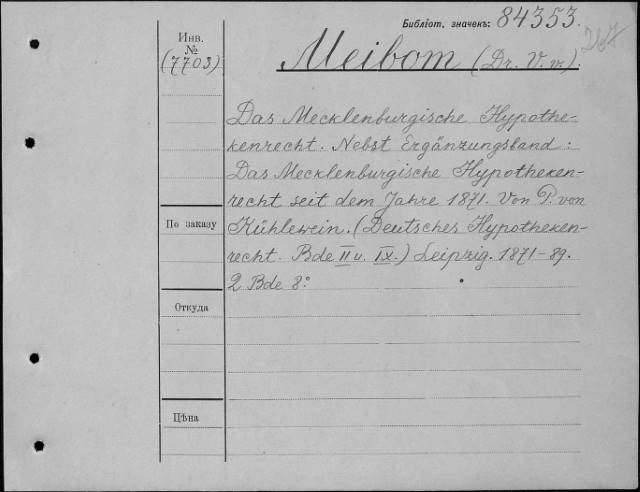 Библіот. значекъ: 84353.
264
Инв.
№
(7703)
Meibom (Dr. V. v.).
Das Mecklenburgische Hypothe-
kenrecht. Nebst Ergänzungsband:
Das Mecklenburgische Hypotheken-
recht seit dem Jahre 1871. Von P. von
По заказу
Kühlewein. (Deutsches Hypotheken-
recht. Bde II u. IX.) Leipzig. 1871-89.
2 Bde 8°.
Откуда
Цѣна